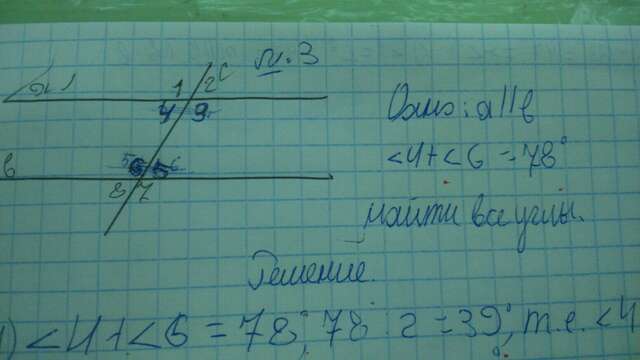 №.3
a
1 2 c
4 3
Дано: a||b
<4+<6=78°
5 6
в
8 7
найти все углы.
Решение.
1) <4+<6=78°, 78:2=39°, т.е. <4